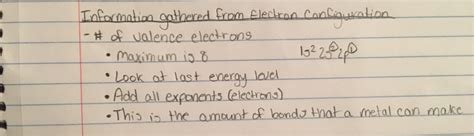 Information gathered from Electron Configuration
- # of valence electrons
• Maximum is 8 1s² 2s² 2p¹
• Look at last energy level
• Add all exponents (electrons)
• This is the amount of bonds that a metal can make